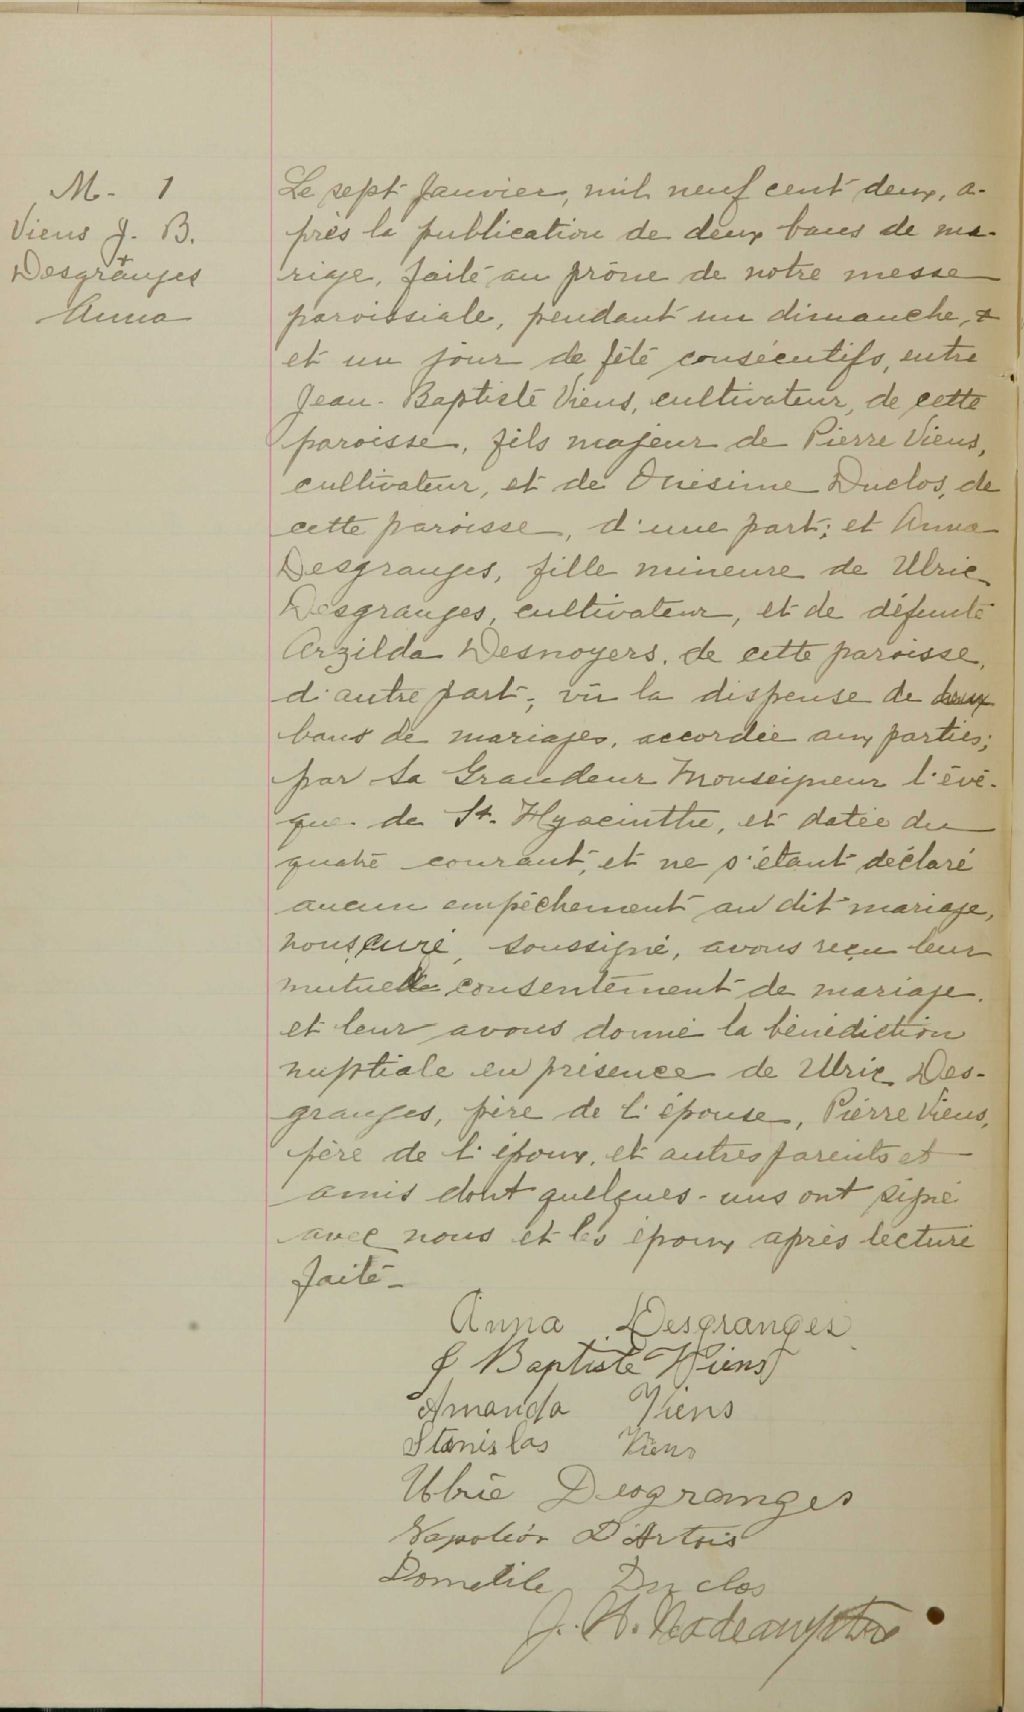 M. 1
Viens J. B.
+
Desgranges
Anna
Le sept Janvier, mil neuf cent deux, a-
près la publication de deux bans de ma-
riage, faite au prône de notre messe
paroissiale, pendant un dimanche, &
et un jour de fête consécutifs, entre
Jean-Baptiste Viens, cultivateur, de cette
paroisse, fils majeur de Pierre Viens,
cultivateur, et de Onésime Duclos, de
cette paroisse, d'une part; et Anna
Desgranges, fille mineure de Ulric
Desgranges, cultivateur, et de défunte
Arzilda Desnoyers, de cette paroisse,
d'autre part; vu la dispense de deux
bans de mariages, accordée aux parties;
par Sa Grandeur Monseigneur l'évê-
que de St. Hyacinthe, et datée du
quatre courant, et ne s'étant déclaré
aucun empêchement au dit mariage,
nous, curé, soussigné, avons reçu leur
mutuel consentement de mariage.
et leur avons donné la bénédiction
nuptiale en présence de Ulric Des-
granges, père de l'épouse, Pierre Viens,
père de l'époux, et autres parents et
amis dont quelques-uns ont signé
avec nous et les époux après lecture
faite-
Anna Desgranges
J Baptiste Viens
Amanda Viens
Stanislas Viens
Ulric Desgranges
Napoléon D'Artois
Domitile Duclos
J. A.